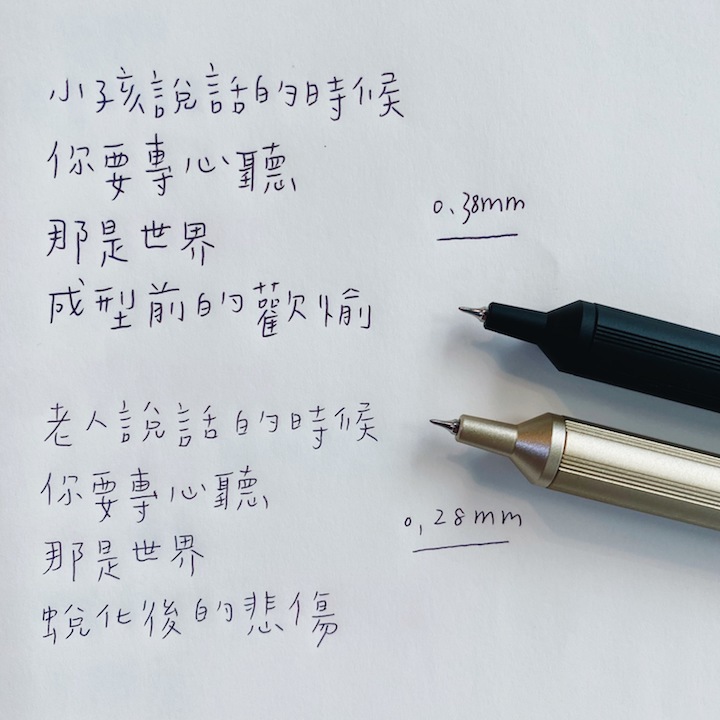 小孩說話的時候
你要專心聽
那是世界
成型前的歡愉
0.38mm
老人說話的時候
你要專心聽
那是世界
蛻化後的悲傷
0.28mm